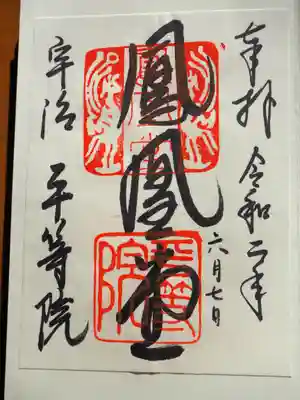 奉拝 令和二年
六月七日
鳳凰堂
宇治 平等院